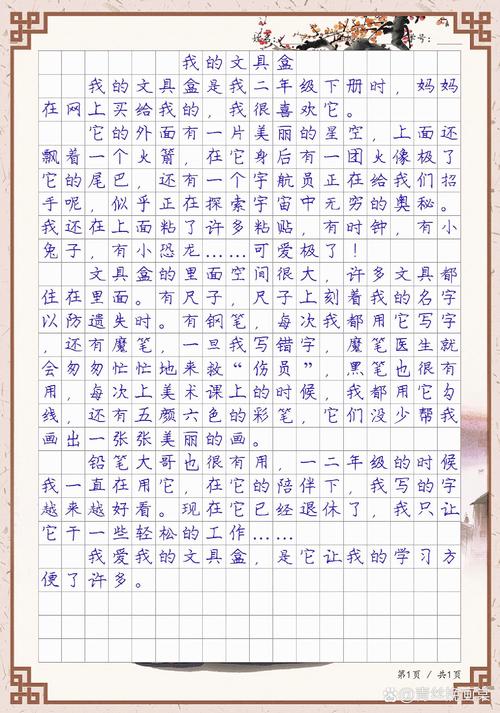 学号：
我的文具盒
我的文具盒是我二年级下册时，妈妈
在网上买给我的，我很喜欢它。
它的外面有一片美丽的星空，上面还
飘着一个火箭，在它身后有一团火像极了
它的尾巴，还有一个宇航员正在给我们招
手呢，似乎正在探索宇宙中无穷的奥秘。
我还在上面粘了许多粘贴，有时钟，有小
兔子，有小恐龙……可爱极了！
文具盒的里面空间很大，许多文具都
住在里面。有尺子，尺子上刻着我的名字
以防遗失时。有钢笔，每次我都用它写字
，还有魔笔，一旦我写错字，魔笔医生就
会匆匆忙忙地来救“伤员”，黑笔也很有
用，每次上美术课上的时候，我都用它勾
线，还有五颜六色的彩笔，它们没少帮我
画出一张张美丽的画。
铅笔大哥也很有用，一二年级的时候
我一直在用它，在它的陪伴下，我写的字
越来越好看。现在它已经退休了，我只让
它干一些轻松的工作……
我爱我的文具盒，是它让我的学习方
便了许多。
第1页 / 共1页